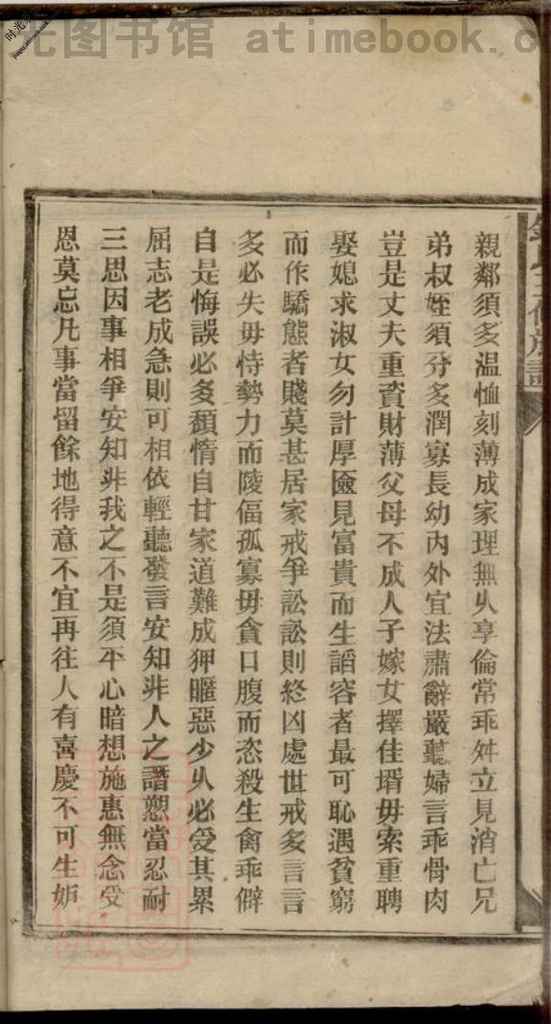 光图书馆 atimebook.c
親鄰須多温恤刻薄成家理無久享倫常乖舛立見消亡兄
弟叔姪須分多潤寡長幼內外宜法肅辭嚴聽婦言乖骨肉
豈是丈夫重資財薄父母不成人子嫁女擇佳壻毋索重聘
娶媳求淑女勿計厚匳見富貴而生謟容者最可恥遇貧窮
而作驕態者賤莫甚居家戒爭訟訟則終凶處世戒多言言
多必失毋恃勢力而陵偪孤寡毋貪口腹而恣殺生禽乖僻
自是悔誤必多頹惰自甘家道難成狎暱惡少久必受其累
屈志老成急則可相依輕聽發言安知非人之譖愬當忍耐
三思因事相爭安知非我之不是須平心暗想施惠無念受
恩莫忘凡事當留餘地得意不宜再往人有喜慶不可生妒